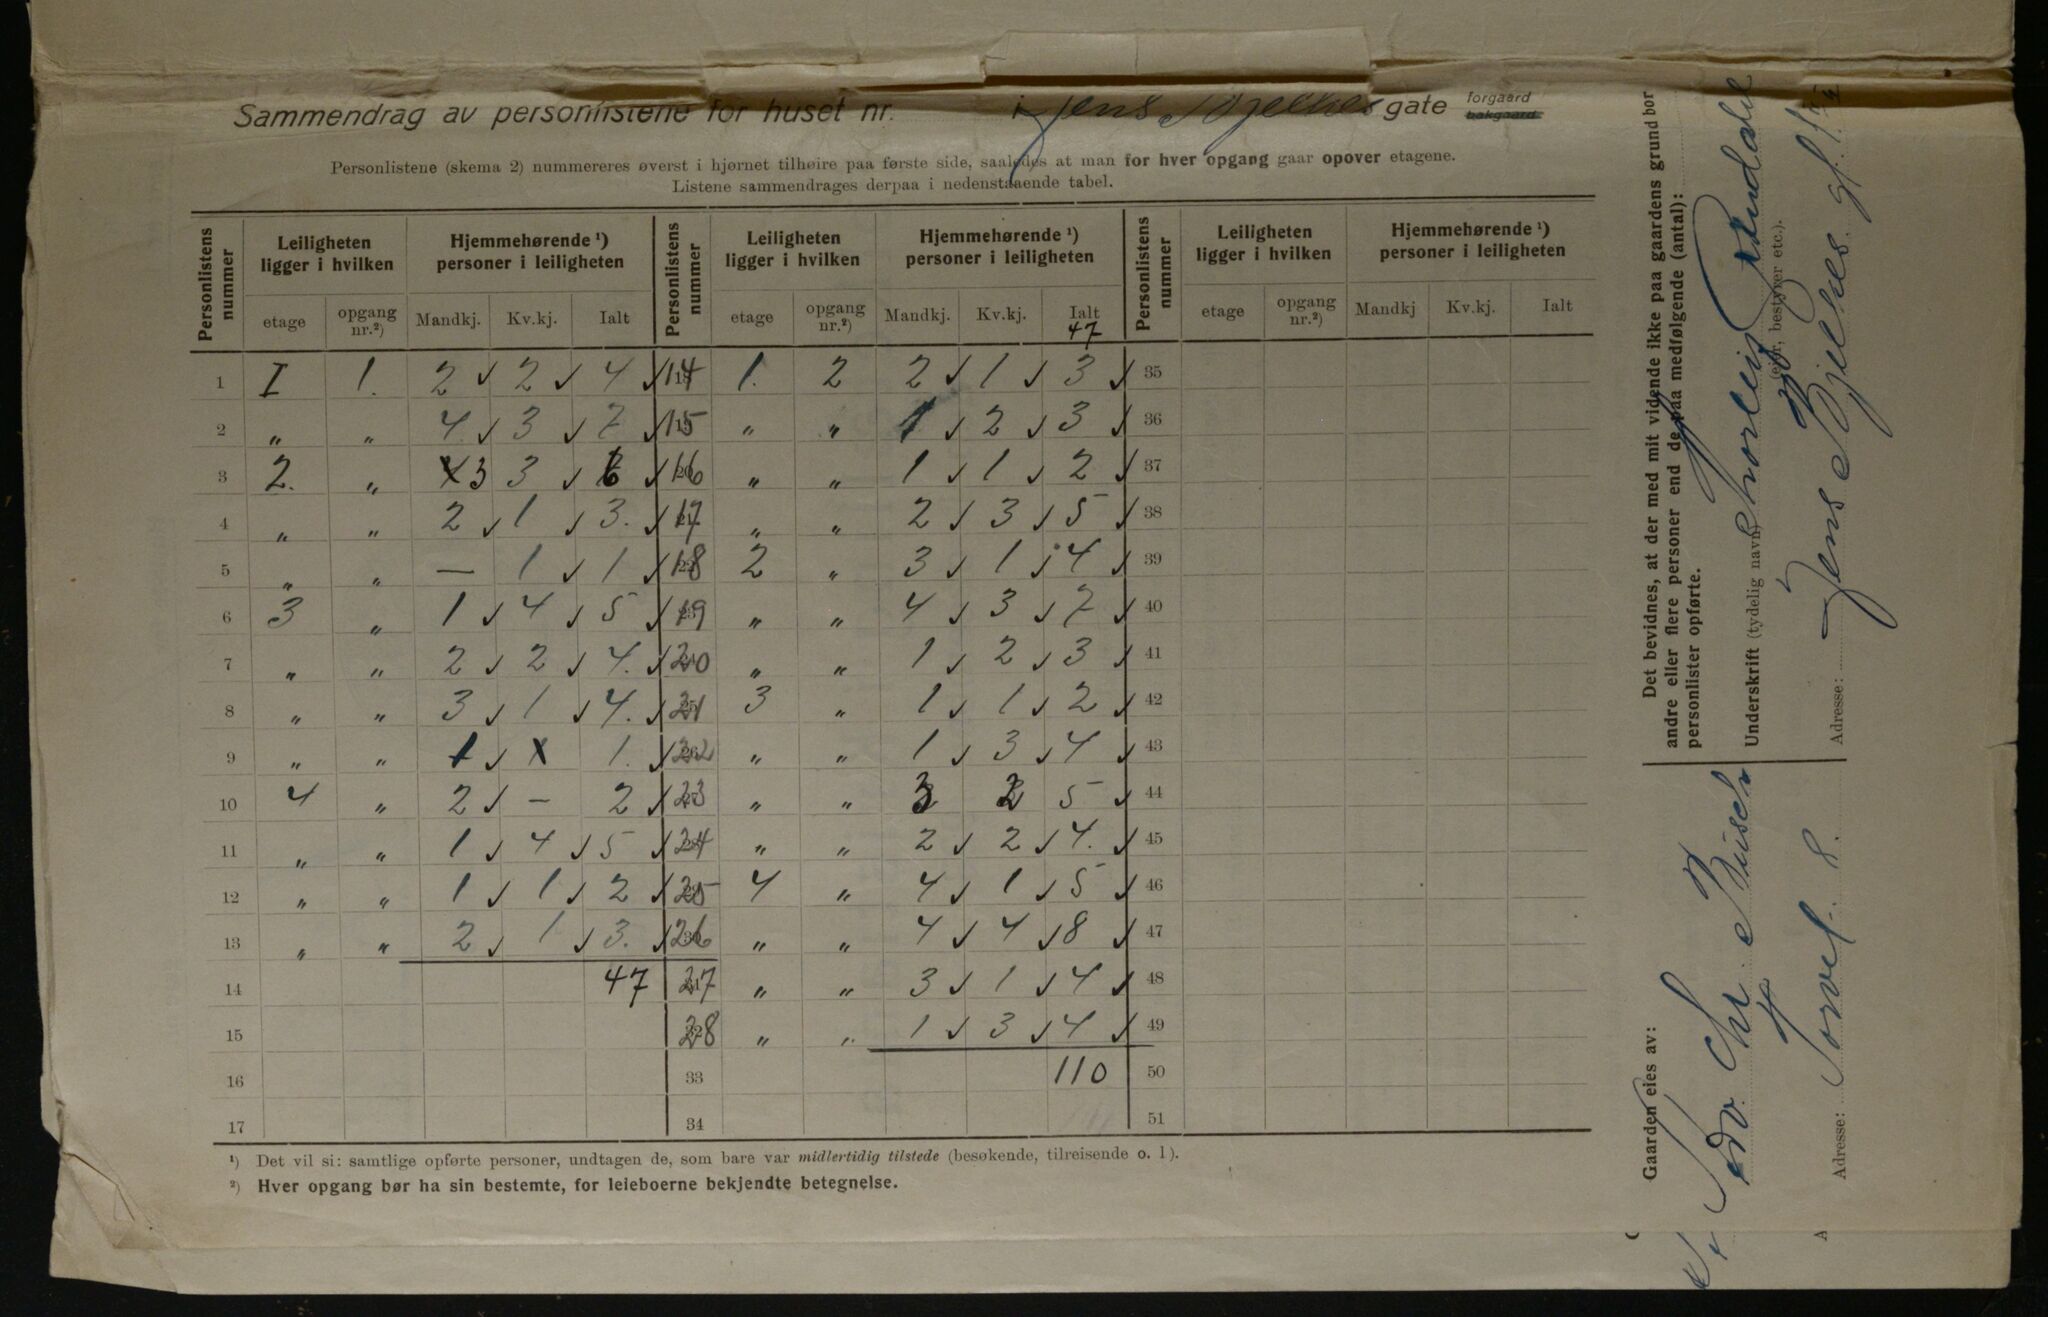 Sammendrag av personlistene for huset nr. i Jens Bjelkes gate forgaard bakgaard
Personlistene (skema 2) nummereres øverst i hjørnet tilhøire paa første side, saaledes at man for hver opgang gaar opover etagene.
Listene sammendrages derpaa i nedenstaaende tabel.
Personlistens nummer | Leiligheten ligger i hvilken | Hjemmehørende ¹) personer i leiligheten | Personlistens nummer | Leiligheten ligger i hvilken | Hjemmehørende ¹) personer i leiligheten | Personlistens nummer | Leiligheten ligger i hvilken | Hjemmehørende ¹) personer i leiligheten
etage | opgang nr.²) | Mandkj. | Kv.kj. | Ialt | etage | opgang nr.²) | Mandkj. | Kv.kj. | Ialt | etage | opgang nr.²) | Mandkj | Kv.kj. | Ialt
47
1 I 1. 2 2 4 14 1. 2 2 1 3 35
2 „ „ 4 3 7 15 „ „ 1 2 3 36
3 2. „ 3 3 6 16 „ „ 1 1 2 37
4 „ „ 2 1 3. 17 „ „ 2 3 5 38
5 „ „ — 1 1 18 2 „ 3 1 4 39
6 3 „ 1 4 5 19 „ „ 4 3 7 40
7 „ „ 2 2 4. 20 „ „ 1 2 3 41
8 „ „ 3 1 4. 21 3 „ 1 1 2 42
9 „ „ 1 x 1. 22 „ „ 1 3 4 43
10 4 „ 2 – 2 23 „ „ 3 2 5 44
11 „ „ 1 4 5 24 „ „ 2 2 4. 45
12 „ „ 1 1 2 25 4 „ 4 1 5 46
13 „ „ 2 1 3. 26 „ „ 4 4 8 47
14 47 27 „ „ 3 1 4 48
15 28 „ „ 1 3 4 49
16 33 110 50
17 34 51
¹) Det vil si: samtlige opførte personer, undtagen de, som bare var midlertidig tilstede (besøkende, tilreisende o. l).
²) Hver opgang bør ha sin bestemte, for leieboerne bekjendte betegnelse.
Det bevidnes, at der med mit vidende ikke paa gaardens grund bor
andre eller flere personer end de paa medfølgende (antal):
personlister opførte.
Underskrift (tydelig navn) Thorleif
(eier, bestyrer etc.).
Adresse: Jens Bjelkes gt.
Gaarden eies av:
Chr Büsch
Adresse: Torvet 8.